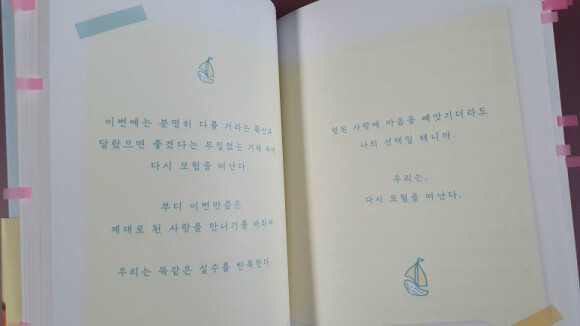 이번에는 분명히 다를 거라는 확신과
달랐으면 좋겠다는 부질없는 기대 속에
다시 모험을 떠난다.
부디 이번만큼은
제대로 된 사랑을 만나기를 바라며
우리는 똑같은 실수를 반복한다.
헛된 사랑에 마음을 빼앗기더라도
나의 선택일 테니까.
우리는,
다시 모험을 떠난다.